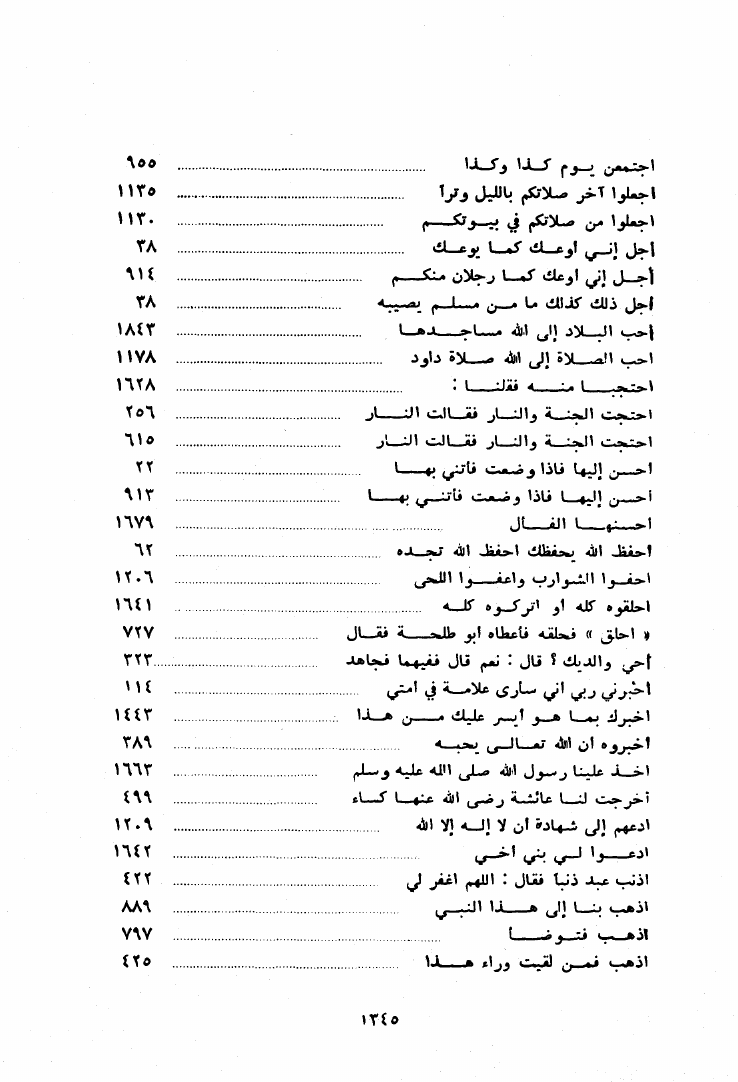 اجتمعن يوم كذا وكذا ٩٥٥
اجعلوا آخر صلاتكم بالليل وتراً ١١٢٥
اجعلوا من صلاتكم في بيوتكم ١١٣٠
أجل إني أوعك كما يوعك ٣٨
أجل إني أوعك كما رجلان منكم ٩١٤
أجل ذلك كذلك ما من مسلم يصيبه ٣٨
أحب البلاد إلى الله مساجدها ١٨٤٣
احب الصلاة إلى الله صلاة داود ١١٧٨
احتجبا منه فقلنا : ١٦٢٨
احتجت الجنة والنار فقالت النار ٢٥٦
احتجت الجنة والنار فقالت النار ٦١٥
احسن إليها فاذا وضعت فأتني بها ٢٢
احسن إليها فاذا وضعت فأتني بها ٩١٣
احسنها الفال ١٦٧٩
احفظ الله يحفظك احفظ الله تجده ٦٢
احفوا الشوارب واعفوا اللحى ١٢٠٦
احلقوه كله أو اتركوه كله ١٦٤١
« احلق » فحلقه فأعطاه أبو طلحة فقال ٧٢٧
أحي والديك ؟ قال : نعم قال ففيهما فجاهد ٣٢٣
اخبرني ربي اني سأرى علامة في امتي ١١٤
اخبرك بما هو أيسر عليك من هذا ١٤٤٣
أخبروه أن الله تعالى يحبه ٣٨٩
اخذ علينا رسول الله صلى الله عليه وسلم ١٦٦٣
أخرجت لنا عائشة رضى الله عنها كساء ٤٩٩
ادعهم إلى شهادة أن لا إله إلا الله ١٢٠٩
ادعوا لي بني أخي ١٦٤٢
اذنب عبد ذنباً فقال : اللهم اغفر لي ٤٢٢
اذهب بنا إلى هذا النبي ٨٨٩
اذهب فتوضأ ٧٩٧
اذهب فمن لقيت وراء هذا ٤٢٥
١٣٤٥